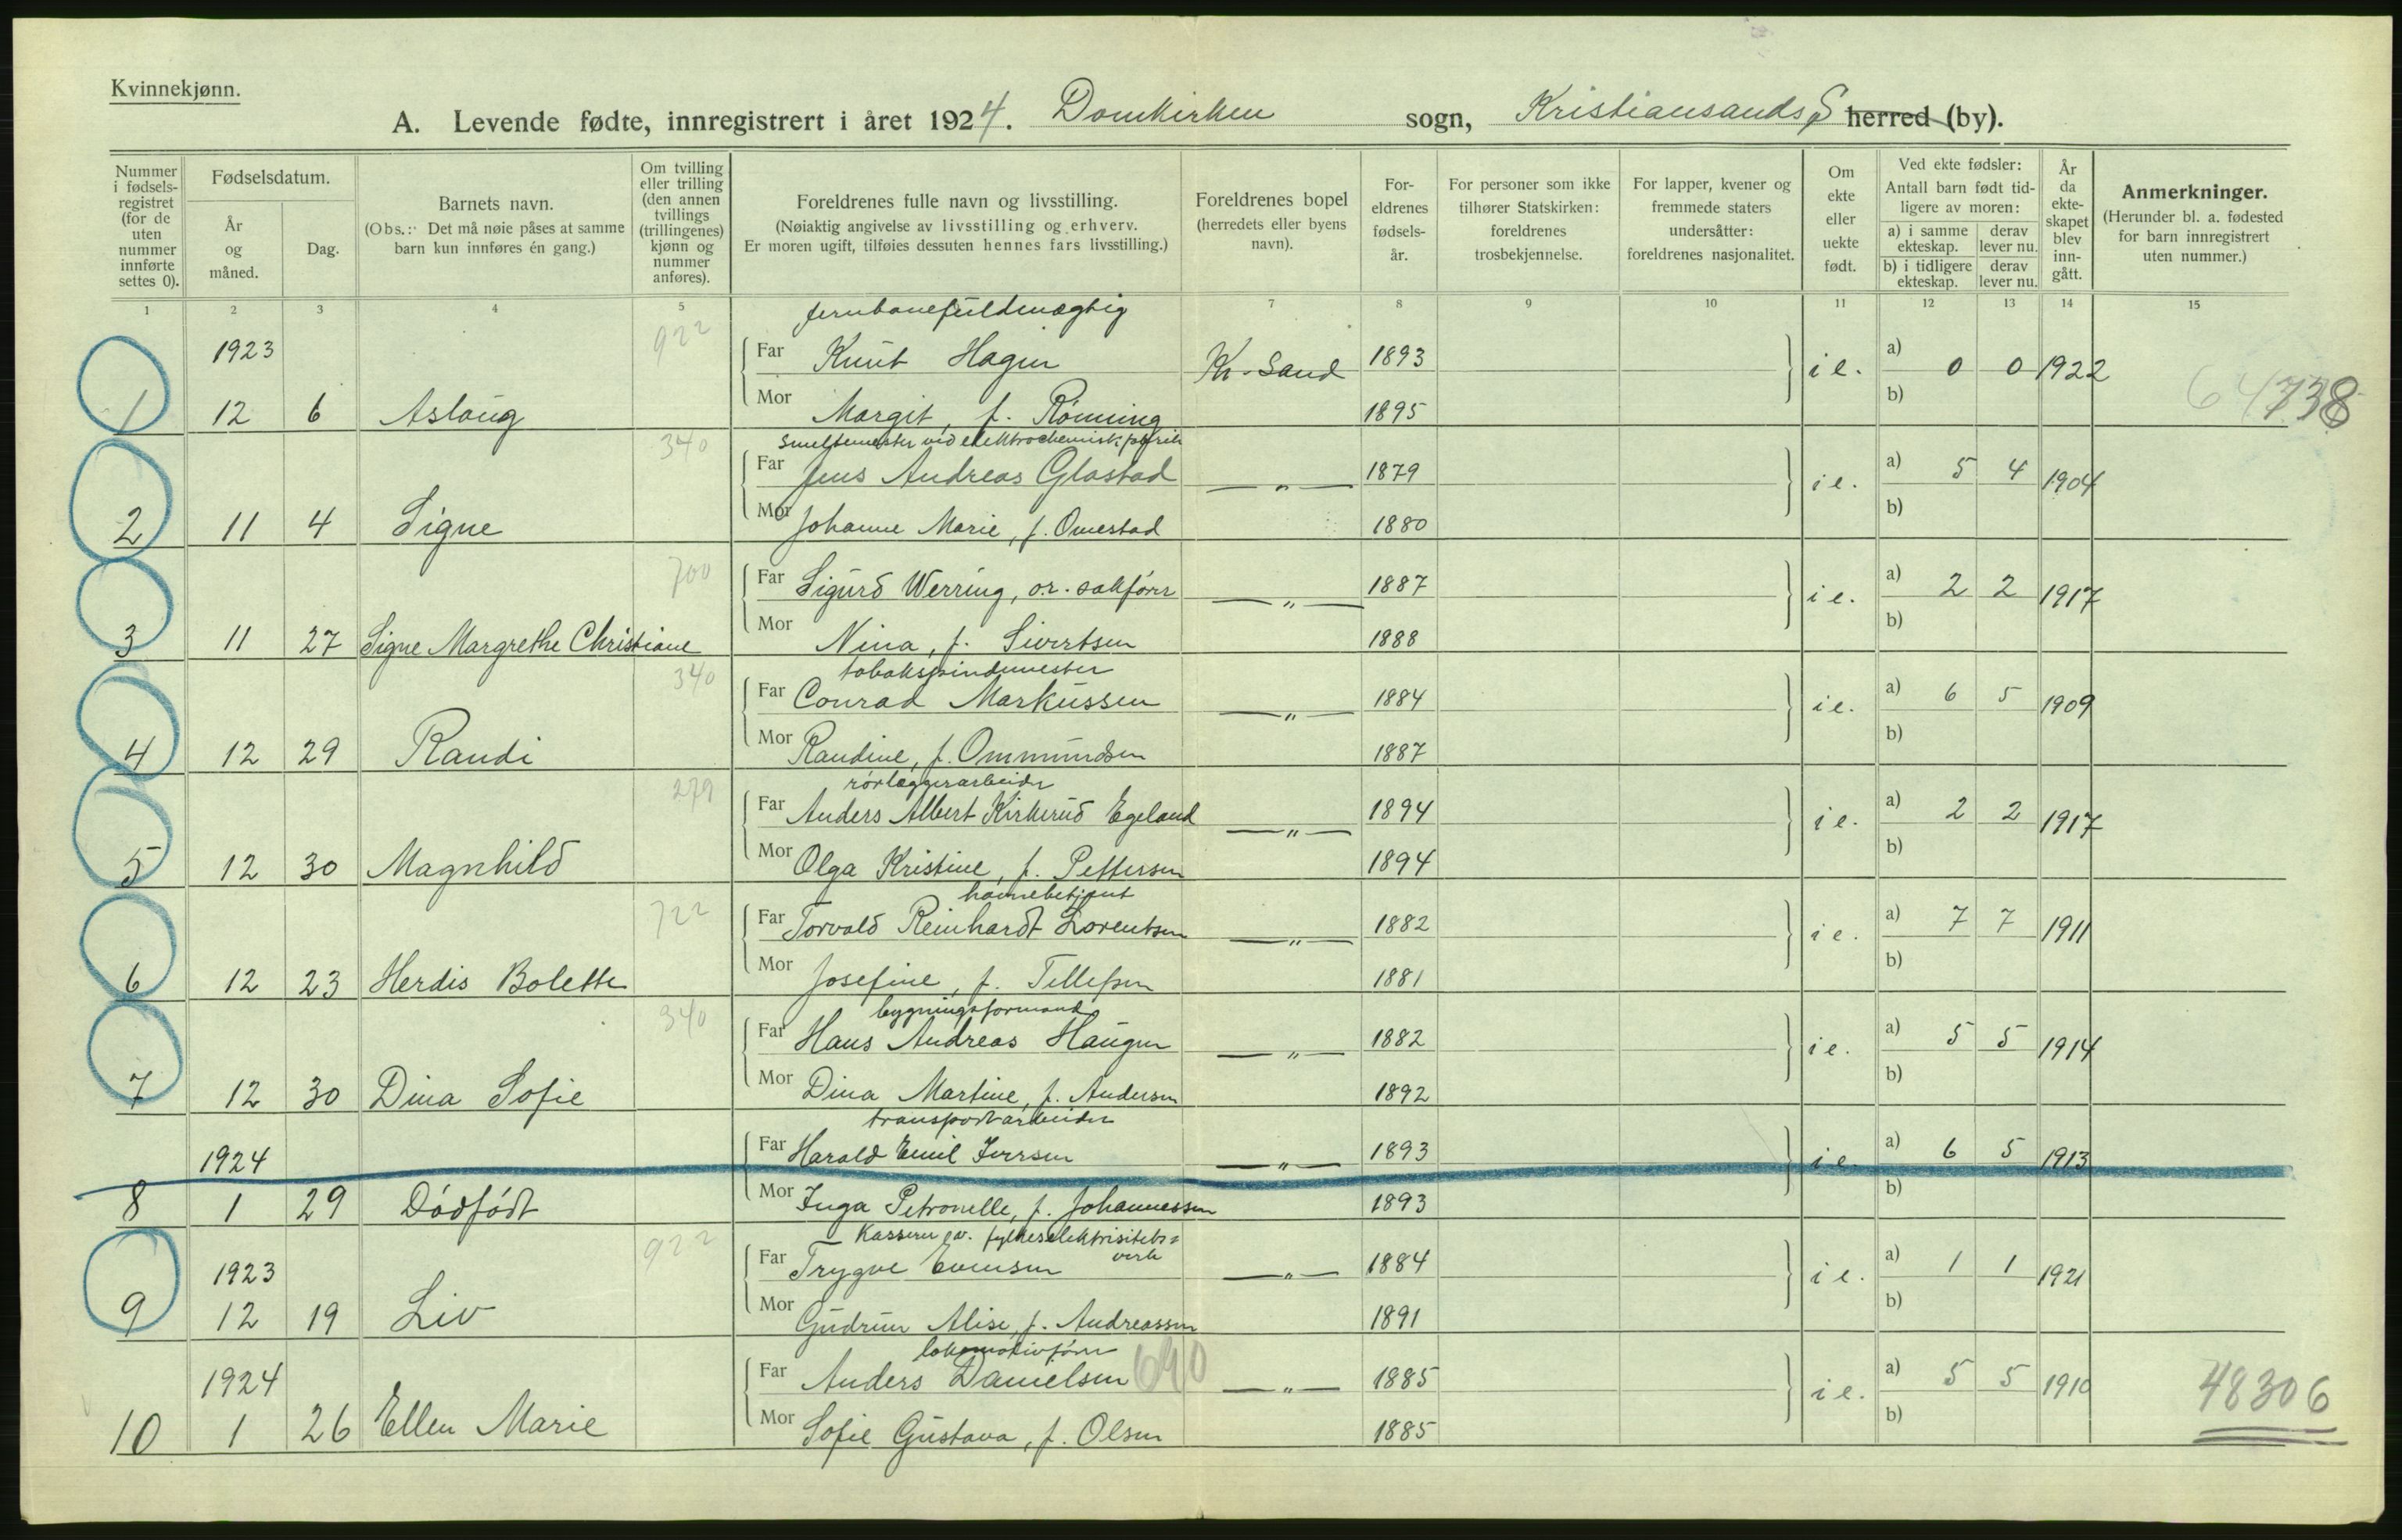 Kvinnekjønn.
A. Levende fødte, innregistrert i året 1924. Domkirken sogn, Kristiansands S herred (by).
Nummer i fødsels-registret (for de uten nummer innførte settes 0).
Fødselsdatum.
År og måned.
Dag.
Barnets navn.
(Obs.: Det må nøie påses at samme barn kun innføres én gang.)
Om tvilling eller trilling (den annen tvillings (trillingenes) kjønn og nummer anføres).
Foreldrenes fulle navn og livsstilling.
(Nøiaktig angivelse av livsstilling og erhverv.
Er moren ugift, tilføies dessuten hennes fars livsstilling.)
Foreldrenes bopel
(herredets eller byens navn).
For-eldrenes fødsels-år.
For personer som ikke tilhører Statskirken: foreldrenes trosbekjennelse.
For lapper, kvener og fremmede staters undersåtter: foreldrenes nasjonalitet.
Om ekte eller uekte født.
Ved ekte fødsler:
Antall barn født tid-ligere av moren:
a) i samme ekteskap. derav lever nu.
b) i tidligere ekteskap. derav lever nu.
År da ekte-skapet blev inn-gått.
Anmerkninger.
(Herunder bl. a. fødested for barn innregistrert uten nummer.)
1 2 3 4 5 7 8 9 10 11 12 13 14 15
jernbanefuldmægtig
1923 922 Far Knut Hagen Kr-Sand 1893 i e. a) 0 0 1922
1 12 6 Aslaug Mor Margit, f. Rönning 1895 b) 64738
smeltemester vid elektrochemisk fabrik
340 Far Jens Andreas Glastad —"— 1879 i e. a) 5 4 1904
2 11 4 Signe Mor Johanne Marie, f. Omestad 1880 b)
700 Far Sigurd Werring, o.r. sakförer —"— 1887 i e. a) 2 2 1917
3 11 27 Signe Margrethe Christiane Mor Nina, f. Sivertsen 1888 b)
tobakspindemester
340 Far Conrad Markussen —"— 1884 i e. a) 6 5 1909
4 12 29 Randi Mor Randine, f. Ommundsen 1887 b)
rörlæggerarbeider
279 Far Anders Albert Kirkerud Egeland —"— 1894 i e. a) 2 2 1917
5 12 30 Magnhild Mor Olga Kristine, f. Pettersen 1894 b)
havnebetjent
722 Far Torvald Reinhardt Lorentsen —"— 1882 i e. a) 7 7 1911
6 12 23 Herdis Bolette Mor Josefine, f. Tellefsen 1881 b)
bygningsformand
340 Far Hans Andreas Haugen —"— 1882 i e. a) 5 5 1914
7 12 30 Dina Sofie Mor Dina Martine, f. Andersen 1892 b)
transportarbeider
1924 Far Harald Emil Iversen —"— 1893 i e. a) 6 5 1913
8 1 29 Dödfödt Mor Inga Petronelle, f. Johannessen 1893 b)
Kasserer av. fylkeselektrisitets=
verk
1923 922 Far Trygve Evensen —"— 1884 i e. a) 1 1 1921
9 12 19 Liv Mor Gudrun Alise, f. Andreassen 1891 b)
lokomotivförer
1924 Far Anders Danielsen 690 —"— 1885 i e. a) 5 5 1910 48306
10 1 26 Ellen Marie Mor Sofie Gustava, f. Olsen 1885 b)